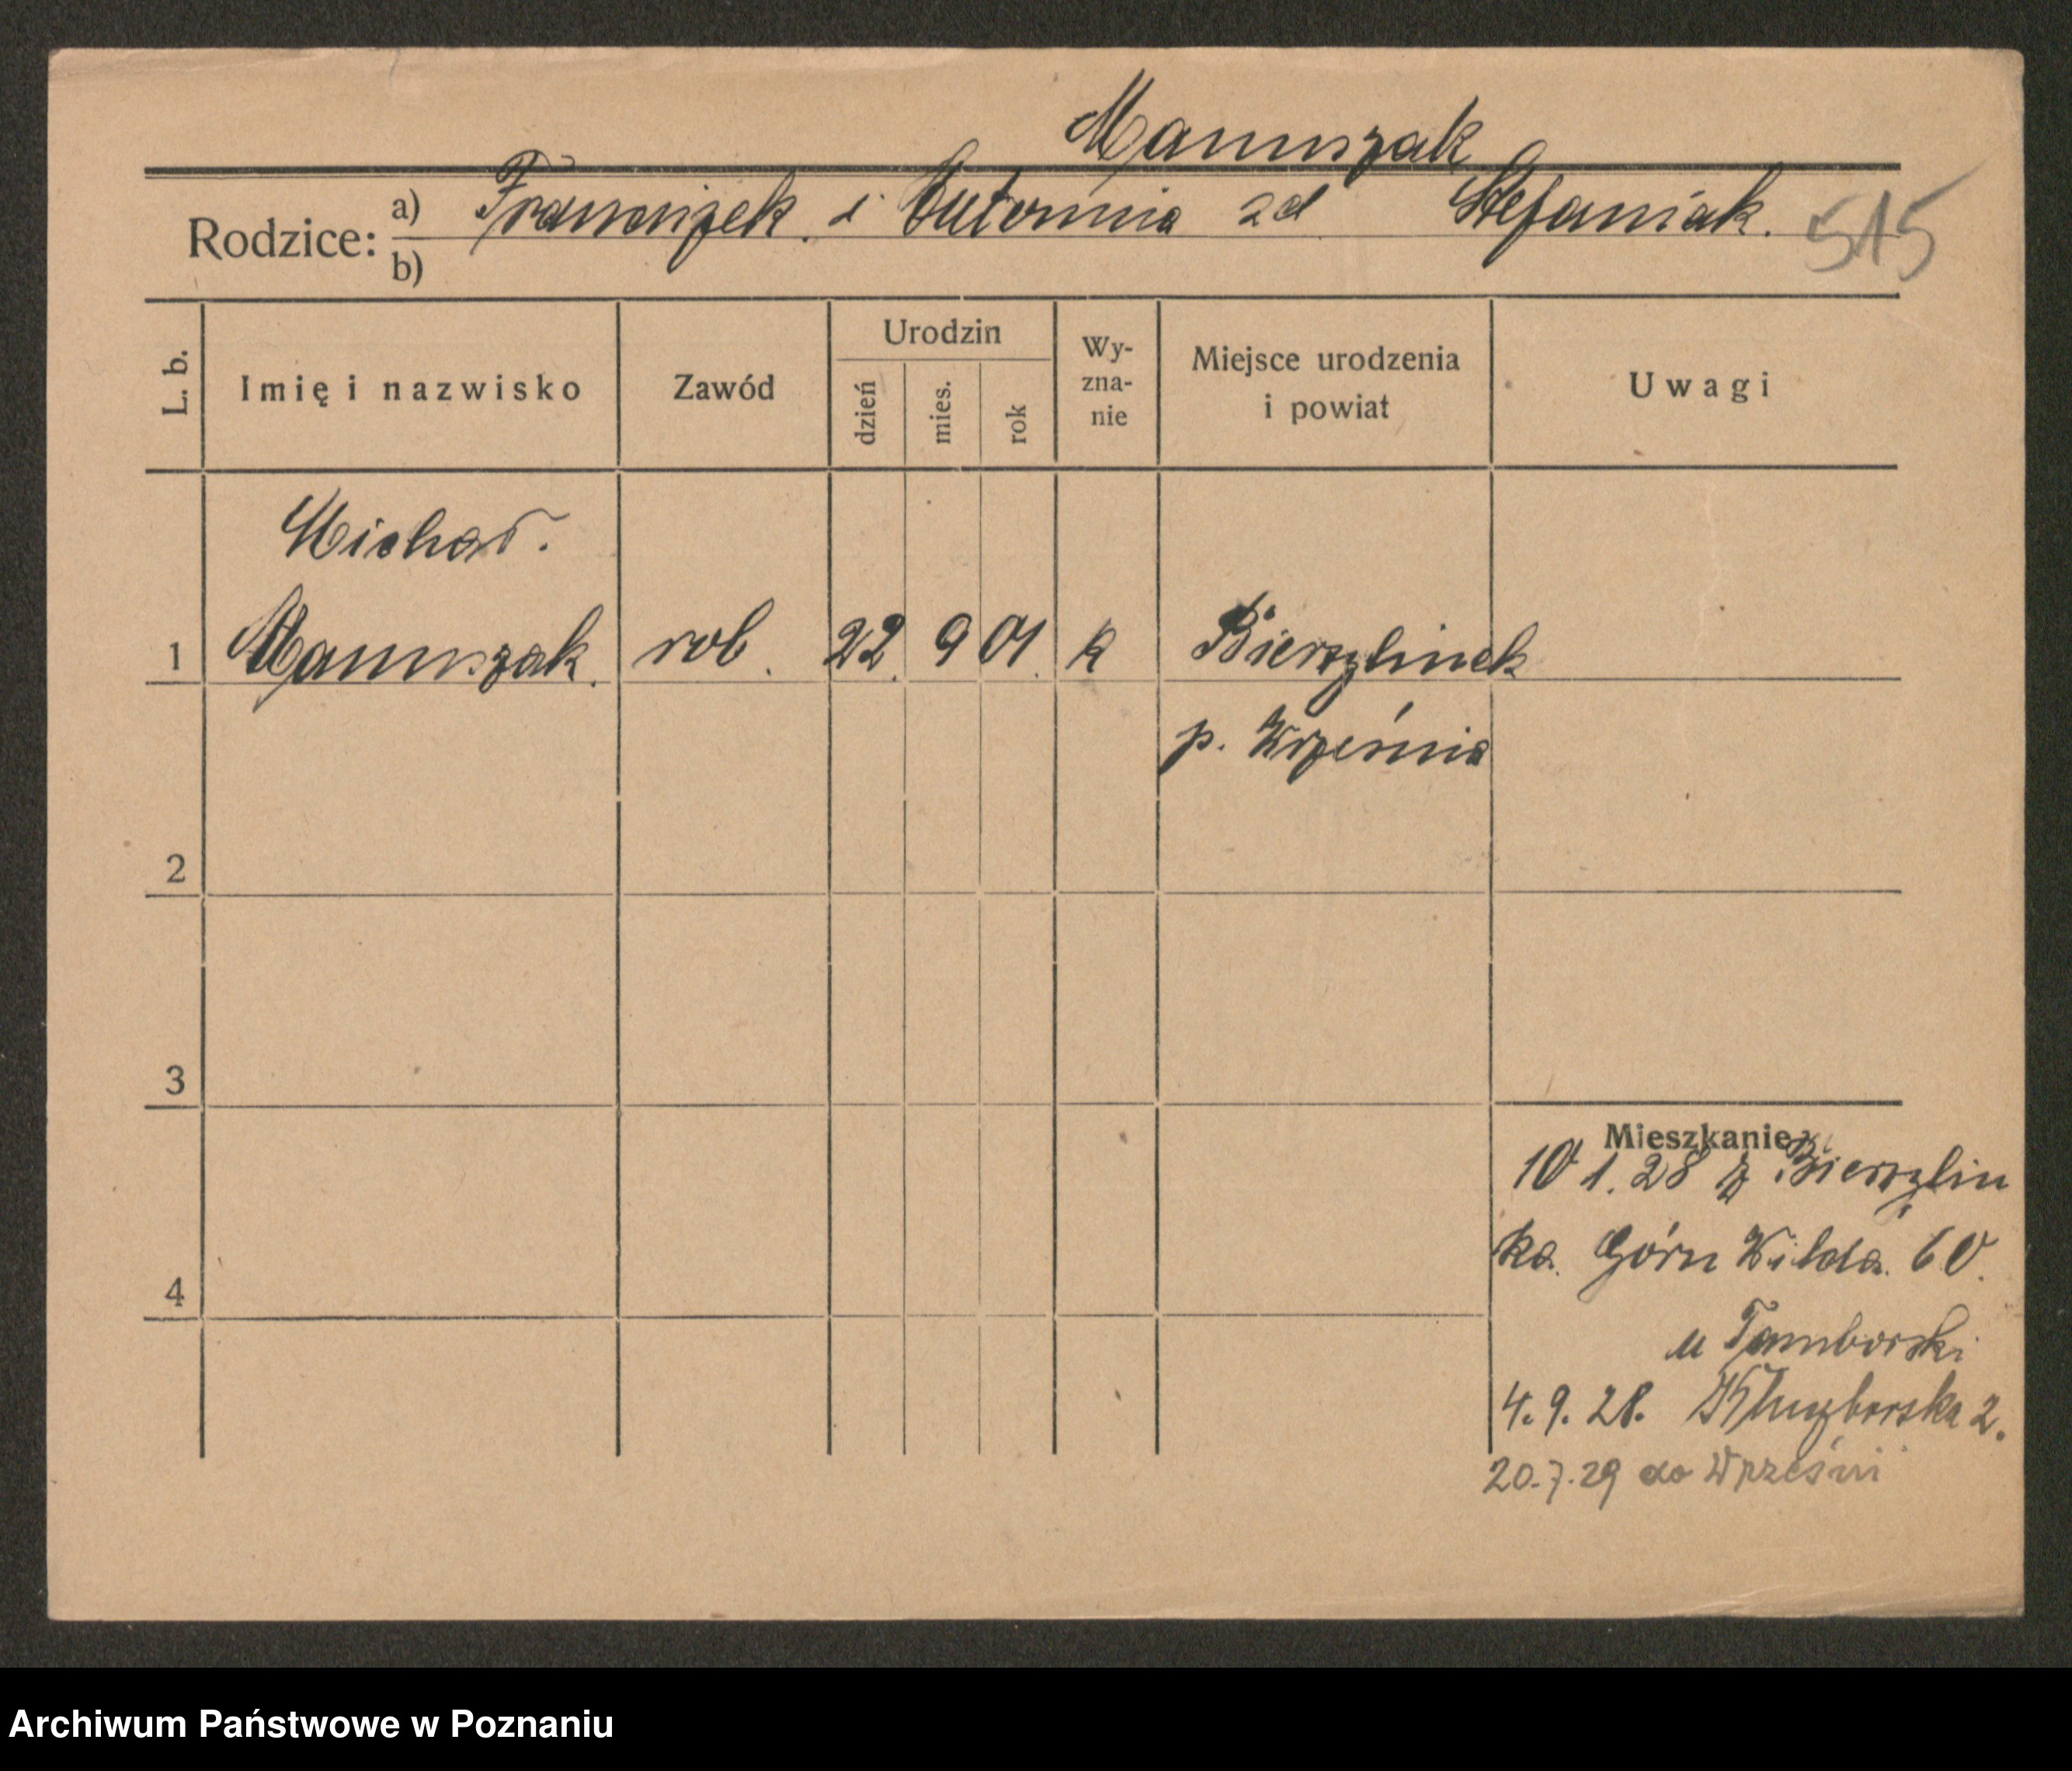 Manuszak
Rodzice: a) Franciszek i Antonina zd Stefaniak.
b)
515
L. b. Imię i nazwisko Zawód Urodzin dzień mies. rok Wy-zna-nie Miejsce urodzenia i powiat Uwagi
Michał.
1 Manuszak. rob. 22. 9 01. k Bierzglinek
p. Września
2
3
4
Mieszkanie
10 1. 28 z Bierzglin
ka. Górn Wilda. 60.
u Tamborski
4. 9. 28. Kluczborska 2.
20. 7. 29 do Wrześni
Archiwum Państwowe w Poznaniu